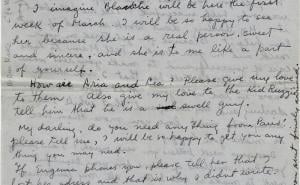 I imagine Blanche will be here the first
week of March. I will be so happy to see
her because she is a real person, sweet
and sincere, and she is to me like a part
of yourself.
How are Aria and Cea? Please give my love
to them. Also give my love to the Red
tell him that he is a swell guy.
My darling, do you need any thing from Paris?
please tell me, I will be so happy to get you any
thing you may need.
If Eugenia phones you, please tell her that I
her adress and that is why I didn't write